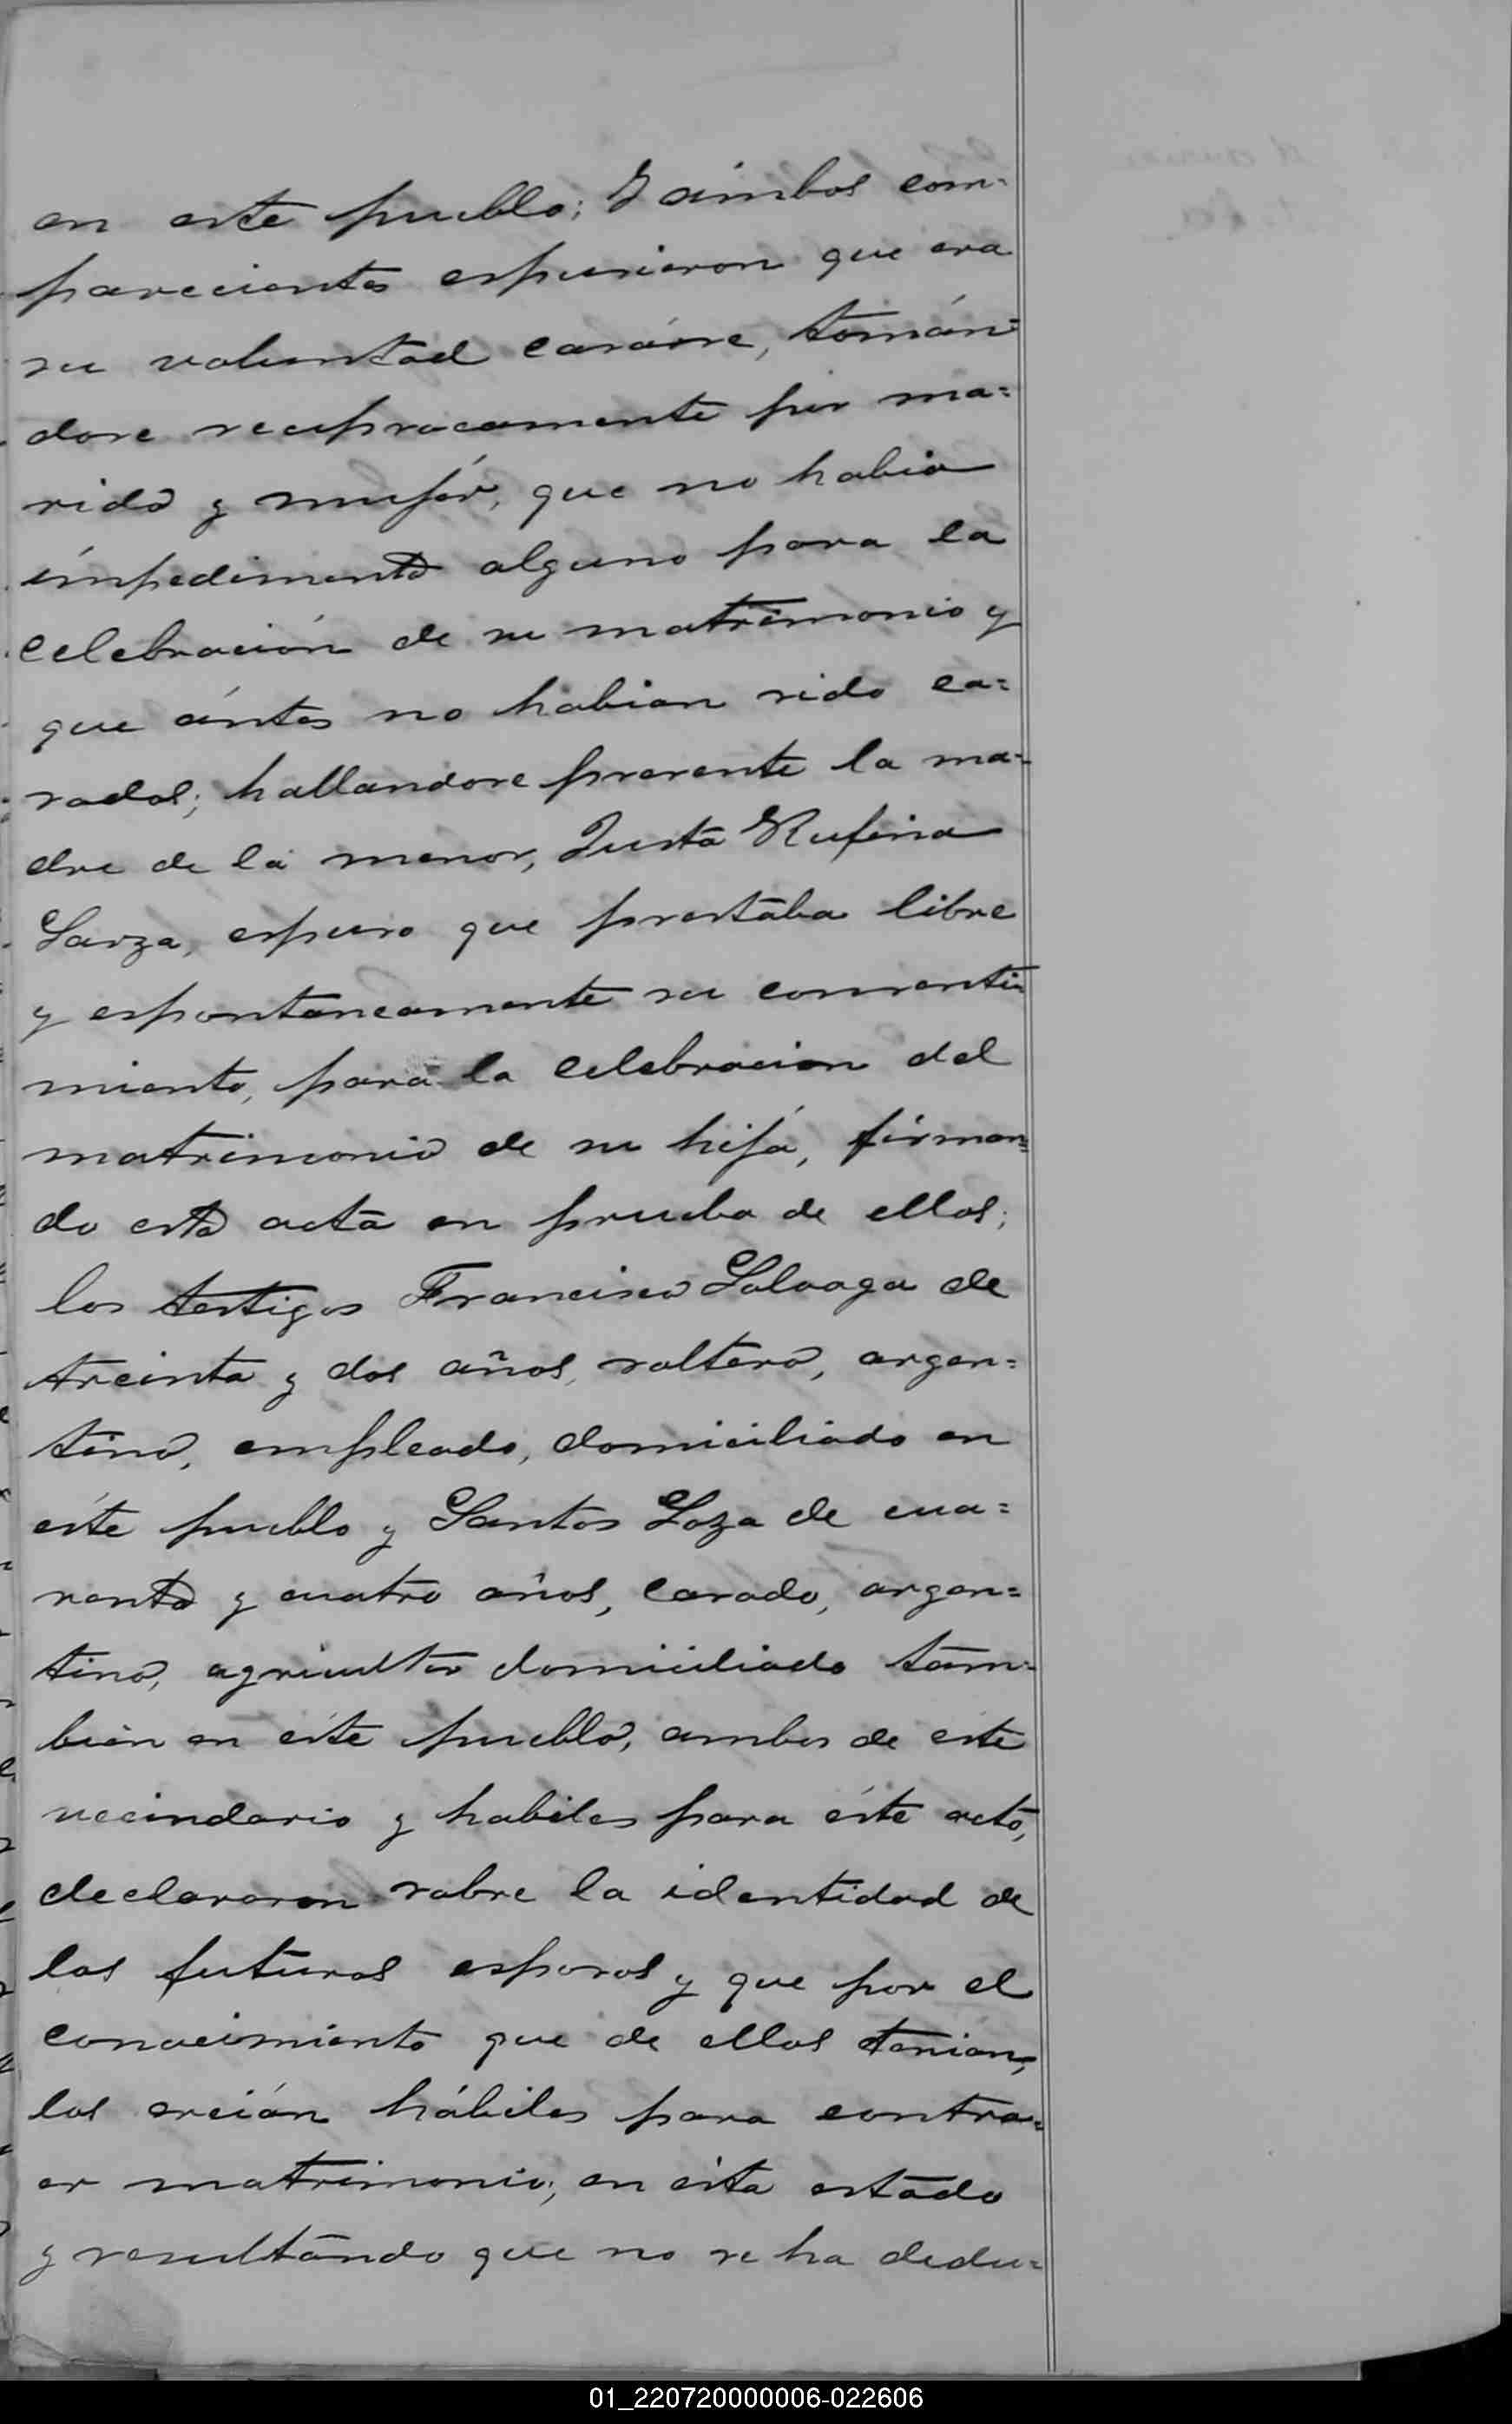 en este pueblo; I ambos com-
parecientes espusieron que era
su voluntad casárse, tomán=
dose reciprocamente por ma=
rido y mujér, que no habia
impedimento alguno para la
celebración de su matrimonio y
que ántes no habian sido ca=
sados; hallandose presente la ma=
dre de la menor, Justa Rufina
Sarza, espuso que prestaba libre
y espontaneamente su consenti=
miento, para la celebracion del
matrimonio de su hija, firman=
do esta acta en prueba de ellos;
los testigos Francisco Soloaga de
treinta y dos años, soltero, argen=
tino, empleado, domiciliado en
éste pueblo y Santos Loza de cua=
renta y cuatro años, casado, argen=
tino, agricultor domiciliado tam=
bien en éste pueblo, ambos de este
vecindario y habiles para éste acto,
declararon sobre la identidad de
los futuros esposos y que por el
conocimiento que de ellos tenian,
los creián hábiles para contra=
er matrimonio; en ésta estado
y resultando que no se ha dedu=
01_220720000006-022606